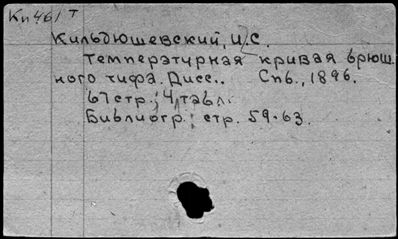 Кп461 т
Кильдюшевский, И.С.
Температурная кривая брюш.
ного тифа. Дисс.. Спб., 1896.
67 стр.; 4 табл.
Библиогр.: стр. 59-63.